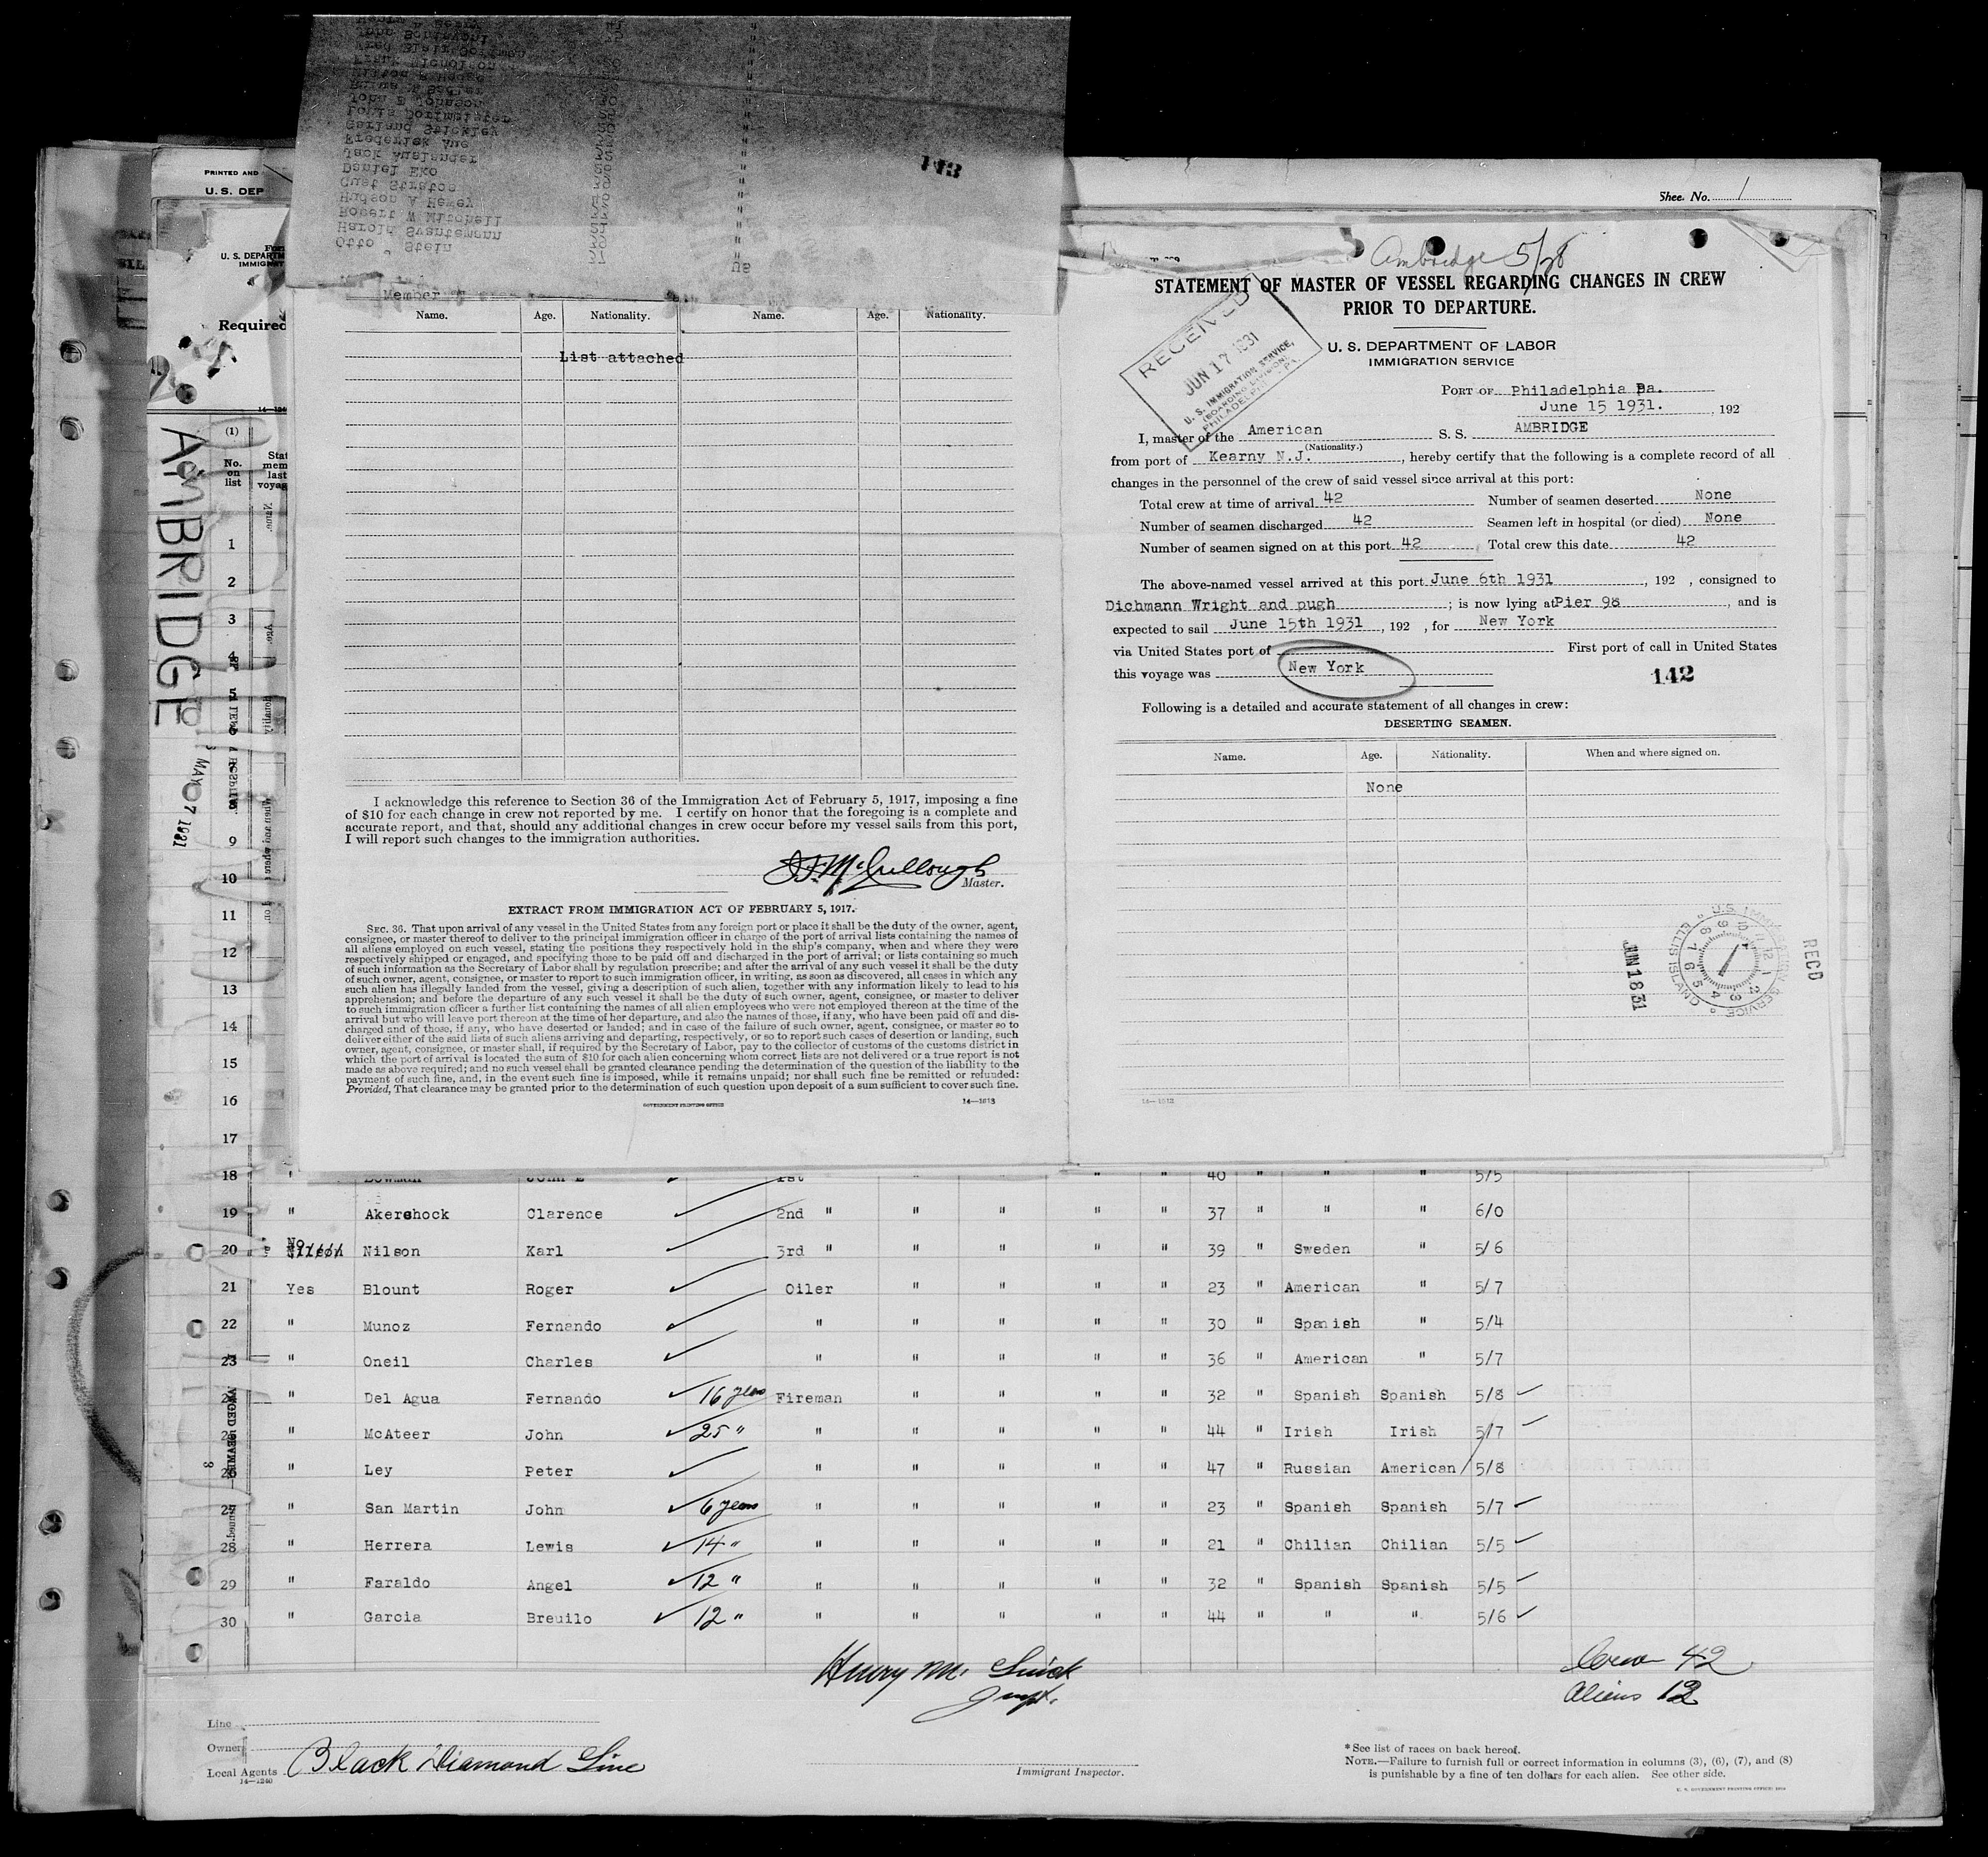 143
Otto J Stein 
Harold Svantemann
Robert W Mitchell
Hudson A Hewey
Gust Stratos
Daniel Eko
Jack Auslander
Frederiek Aue
Garland Stickley
Louis Portmeister
John E Johnson
PRINTED AND
U. S. DEP
U. S. DEPARTM
IMMIGRAT
Required
AMBRIDGE
MAY 07 1931
Member
Name. Age. Nationality. Name. Age. Nationality.
List attached
I acknowledge this reference to Section 36 of the Immigration Act of February 5, 1917, imposing a fine
of $10 for each change in crew not reported by me. I certify on honor that the foregoing is a complete and
accurate report, and that, should any additional changes in crew occur before my vessel sails from this port,
I will report such changes to the immigration authorities.
McCullough
Master.
EXTRACT FROM IMMIGRATION ACT OF FEBRUARY 5, 1917.
SEC. 36. That upon arrival of any vessel in the United States from any foreign port or place it shall be the duty of the owner, agent,
consignee, or master thereof to deliver to the principal immigration officer in charge of the port of arrival lists containing the names of
all aliens employed on such vessel, stating the positions they respectively hold in the ship's company, when and where they were
respectively shipped or engaged, and specifying those to be paid off and discharged in the port of arrival; or lists containing so much
of such information as the Secretary of Labor shall by regulation prescribe; and after the arrival of any such vessel it shall be the duty
of such owner, agent, consignee, or master to report to such immigration officer, in writing, as soon as discovered, all cases in which any
such alien has illegally landed from the vessel, giving a description of such alien, together with any information likely to lead to his
apprehension; and before the departure of any such vessel it shall be the duty of such owner, agent, consignee, or master to deliver
to such immigration officer a further list containing the names of all alien employees who were not employed thereon at the time of the
arrival but who will leave port thereon at the time of her departure, and also the names of those, if any, who have been paid off and dis-
charged and of those, if any, who have deserted or landed; and in case of the failure of such owner, agent, consignee, or master so to
deliver either of the said lists of such aliens arriving and departing, respectively, or so to report such cases of desertion or landing, such
owner, agent, consignee, or master shall, if required by the Secretary of Labor, pay to the collector of customs of the customs district in
which the port of arrival is located the sum of $10 for each alien concerning whom correct lists are not delivered or a true report is not
made as above required; and no such vessel shall be granted clearance pending the determination of the question of the liability to the
payment of such fine, and, in the event such fine is imposed, while it remains unpaid; nor shall such fine be remitted or refunded:
Provided, That clearance may be granted prior to the determination of such question upon deposit of a sum sufficient to cover such fine.
GOVERNMENT PRINTING OFFICE 14—1613
Sheet No. 1
Ambridge 5/28
STATEMENT OF MASTER OF VESSEL REGARDING CHANGES IN CREW
PRIOR TO DEPARTURE.
U. S. DEPARTMENT OF LABOR
IMMIGRATION SERVICE
RECEIVED
JUN 17 1931
U. S. IMMIGRATION SERVICE,
(BOARDING DIVISION)
PHILADELPHIA, PA.
PORT OF Philadelphia Pa.
June 15 1931. , 192
I, master of the American S. S. AMBRIDGE
(Nationality.)
from port of Kearny N.J. , hereby certify that the following is a complete record of all
changes in the personnel of the crew of said vessel since arrival at this port:
Total crew at time of arrival 42 Number of seamen deserted None
Number of seamen discharged 42 Seamen left in hospital (or died) None
Number of seamen signed on at this port 42 Total crew this date 42
The above-named vessel arrived at this port June 6th 1931 , 192 , consigned to
Dichmann Wright and pugh ; is now lying at Pier 98 , and is
expected to sail June 15th 1931 , 192 , for New York
via United States port of First port of call in United States
this voyage was New York
142
Following is a detailed and accurate statement of all changes in crew:
DESERTING SEAMEN.
Name. Age. Nationality. When and where signed on.
None
U.S. IMMIGRATION SERVICE ELLIS ISLAND
JUN 18 31
RECD
14—1613
(1)
No. on list
1
2
3
4
5
9
10
11
12
13
14
15
16
17
18 " Bowman John E 1st " " " " 40 " " " 5/5
19 " Akershock Clarence 2nd " " " " " 37 " " " 6/0
20 No Nilson Karl 3rd " " " " " 39 " Sweden " 5/6
21 Yes Blount Roger Oiler " " " " 23 " American " 5/7
22 " Munoz Fernando " " " " " 30 " Spanish " 5/4
23 " Oneil Charles " " " " " 36 " American " 5/7
24 " Del Agua Fernando 16 years Fireman " " " " 32 " Spanish Spanish 5/8
25 " McAteer John 25 " " " " " " 44 " Irish Irish 5/7
26 " Ley Peter " " " " " 47 " Russian American 5/8
27 " San Martin John 6 years " " " " " 23 " Spanish Spanish 5/7
28 " Herrera Lewis 14 " " " " " " 21 " Chilian Chilian 5/5
29 " Faraldo Angel 12 " " " " " " 32 " Spanish Spanish 5/5
30 " Garcia Breuilo 12 " " " " " " 44 " " " 5/6
Crew 42
Aliens 12
Line
Owner
Local Agents Black Diamond Line
14—1240
Immigrant Inspector.
* See list of races on back hereof.
NOTE.—Failure to furnish full or correct information in columns (3), (6), (7), and (8)
is punishable by a fine of ten dollars for each alien. See other side.
U. S. GOVERNMENT PRINTING OFFICE